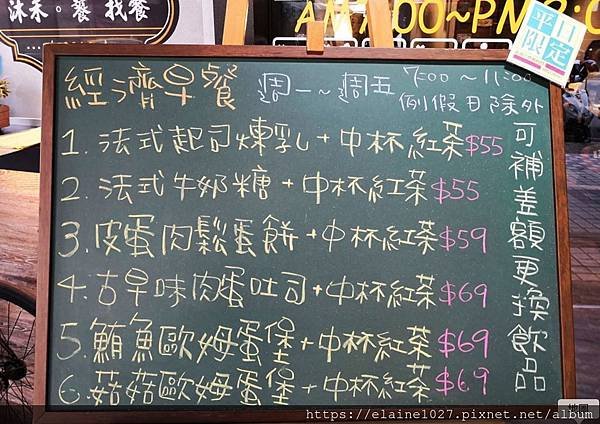 沐禾。饗 找餐
AM7:00~PM2:0
平日
限定
經濟早餐 週一~週五 7:00~11:00
例假日除外
1. 法式起司煉乳+中杯紅茶$55
2. 法式牛奶糖+中杯紅茶$55
3. 皮蛋肉鬆蛋餅+中杯紅茶$59
4. 古早味肉蛋吐司+中杯紅茶$69
5. 鮪魚歐姆蛋堡+中杯紅茶$69
6. 菇菇歐姆蛋堡+中杯紅茶$69
可補差額更換飲品
https://elaine1027.pixnet.net/album